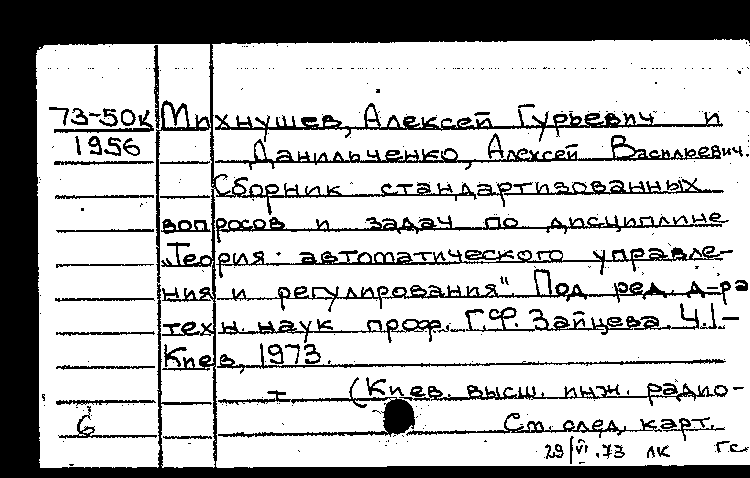 73-50к Михнушев, Алексей Гурьевич и
1956 Данильченко, Алексей Васильевич.
Сборник стандартизованных
вопросов и задач по дисциплине
„Теория автоматического управле-
ния и регулирования". Под ред. д-ра
техн. наук проф. Г.Ф. Зайцева. Ч.1-
Киев, 1973.
(Киев. высш. инж. радио-
6 См. след. карт.
29/VI.73 лк гс